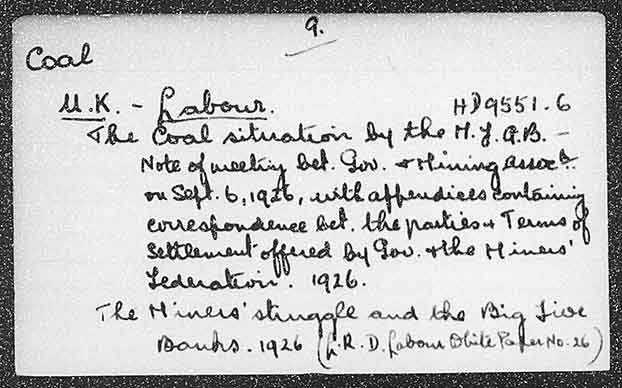 9.
Coal
U.K. - Labour. HD9551.6
The Coal situation by the M.F.G.B. -
Note of meeting bet. Gov. & Mining Assocn.
on Sept. 6, 1926, with appendices containing
correspondence bet. the parties & Terms of
Settlement offered by Gov. & the Miners'
Federation. 1926.
The Miners' struggle and the Big Five
Banks. 1926 (L.R.D. Labour White Paper No. 26)